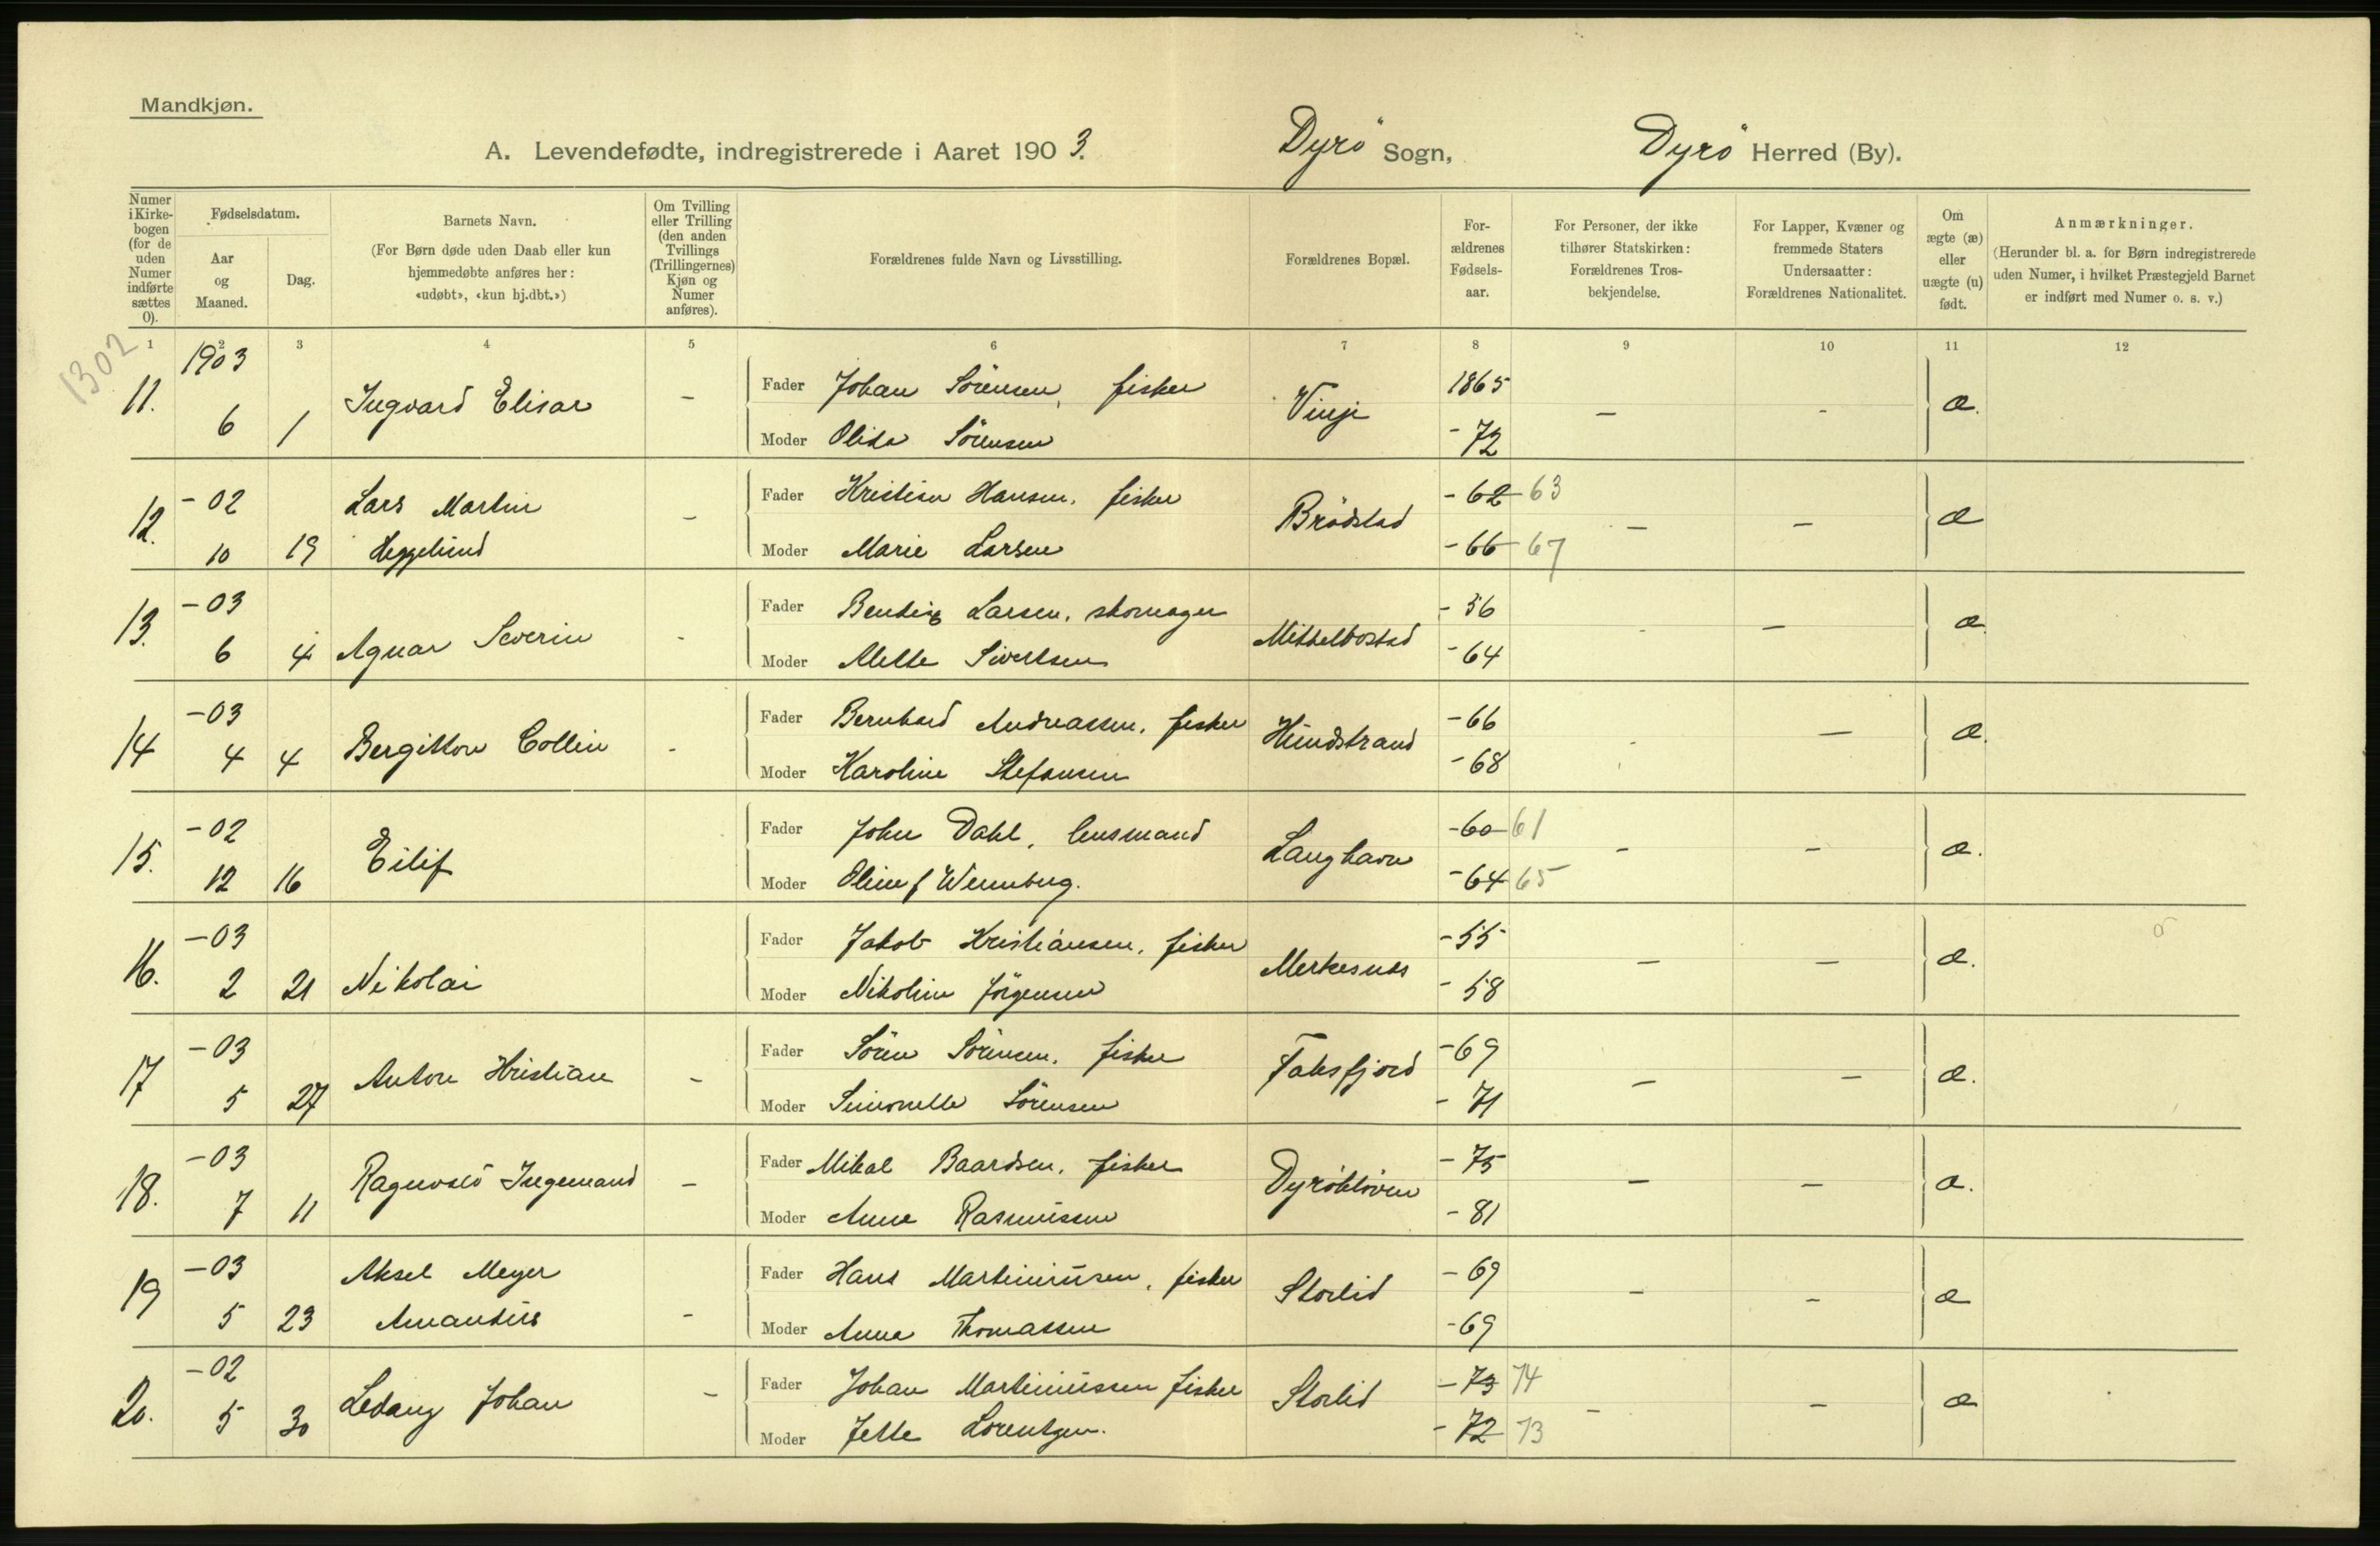 Mandkjøn.
A. Levendefødte, indregistrerede i Aaret 1903. Dyrö Sogn, Dyrö Herred (By).
Numer i Kirkebogen (for de uden Numer indførte sættes 0).
Fødselsdatum.
Aar og Maaned.
Dag.
Barnets Navn.
(For Børn døde uden Daab eller kun hjemmedøbte anføres her: «udøbt», «kun hj.dbt.»)
Om Tvilling eller Trilling (den anden Tvillings (Trillingernes) Kjøn og Numer anføres).
Forældrenes fulde Navn og Livsstilling.
Forældrenes Bopæl.
Forældrenes Fødselsaar.
For Personer, der ikke tilhører Statskirken: Forældrenes Trosbekjendelse.
For Lapper, Kvæner og fremmede Staters Undersaatter: Forældrenes Nationalitet.
Om ægte (æ) eller uægte (u) født.
Anmærkninger.
(Herunder bl. a. for Børn indregistrerede uden Numer, i hvilket Præstegjeld Barnet er indført med Numer o. s. v.)
1 2 3 4 5 6 7 8 9 10 11 12
1302
1903
11. 6 1 Ingvard Elisar - Fader Johan Sörensen, fisker Vinje 1865 - - æ.
Moder Olida Sörensen - 72
12. - 02 Lars Martin - Fader Kristian Hansen, fisker Brödstad - 62 63 - - æ
10 19 Heggelund Moder Marie Larsen - 66 67
13. - 03 Fader Bendix Larsen, skomager - 56
6 4 Agnar Severin - Moder Mette Sivertsen Middelbostad - 64 - - æ
14 - 03 Fader Bernhard Andreassen, fisker Hundstrand - 66
4 4 Bergitton Collin - Moder Karoline Stefansen - 68 - - æ.
15. - 02 Fader John Dahl, lensmand Langhavn - 60 61
12 16 Eilif Moder Oline f Wennberg. - 64 65 - - æ.
16. - 03 Fader Jakob Kristiansen, fisker - 55
2 21 Nikolai Moder Nikoline Jörgensen - 58 - - æ.
17 - 03 Fader Sören Sörensen, fisker Faksfjord - 69
5 27 Anton Kristian - Moder Simonette Sörensen - 71 - - æ.
18. - 03 Fader Mikal Baardsen, fisker Dyröklöven - 75
7 11 Ragnvald Ingemand - Moder Anna Rasmussen - 81 - - æ.
19 - 03 Aksel Meyer Fader Hans Martinussen, fisker Storlid - 69
5 23 Amandus - Moder Anna Thomassen - 69 - - æ
20. - 02 Fader Johan Martinussen fisker Storlid - 73 74
5 30 Ledang Johan - Moder Jette Lorentzen. - 72 73 - - æ